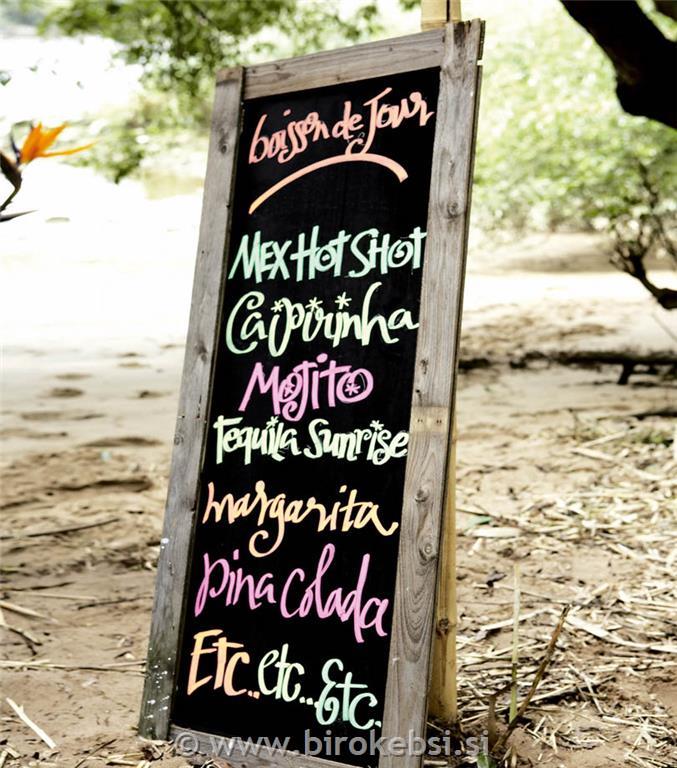 boisson de Jour
Mex Hot Shot
Caipirinha
Mojito
Tequila Sunrise
margarita
pina colada
Etc.. etc... Etc.
© www.birokebsi.si